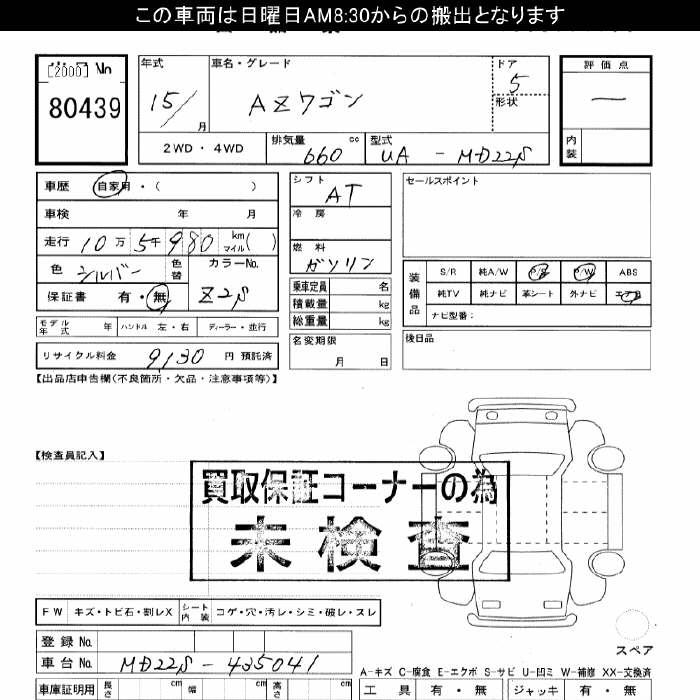 この車両は日曜日AM8:30からの搬出となります
[2000] No
80439
年式 車名・グレード ドア 評価点
15/ 月 AZワゴン 5 形状 —
2WD・4WD 排気量 660 cc 型式 UA - MD22S 内装
車歴 自家用・( )
車検 年 月
走行 10万 5千 980 km マイル( )
色 シルバー 色替 カラーNo.
保証書 有・無 Z2S
モデル年式 年 ハンドル 左・右 ディーラー・並行
リサイクル料金 9130 円 預託済
シフト AT
冷房
燃料 ガソリン
乗車定員 名
積載量 kg
総重量 kg
名変期限 月 日
セールスポイント
装備品 S/R 純A/W P/S P/W ABS
純TV 純ナビ 革シート 外ナビ エアB
ナビ型番:
後日品
【出品店申告欄(不良箇所・欠品・注意事項等)】
【検査員記入】
買取保証コーナーの為
未検査
FW キズ・トビ石・割レX シート内装 コゲ・穴・汚レ・シミ・破レ・スレ
スペア
登録No.
車台No. MD22S-435041
A-キズ C-腐食 E-エクボ S-サビ U-凹ミ W-補修 XX-交換済
車庫証明用 長さ cm 幅 cm 高さ cm 工具 有・無 ジャッキ 有・無